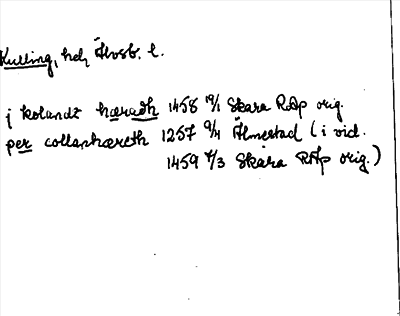 Kulling, hd, Älvsb. l.
j kolandz hæradh 1458 19/1 Skara RAp orig.
per collanhæreth 1257 9/4 Älmestad (i vid.
1459 7/3 Skara RAp orig.)